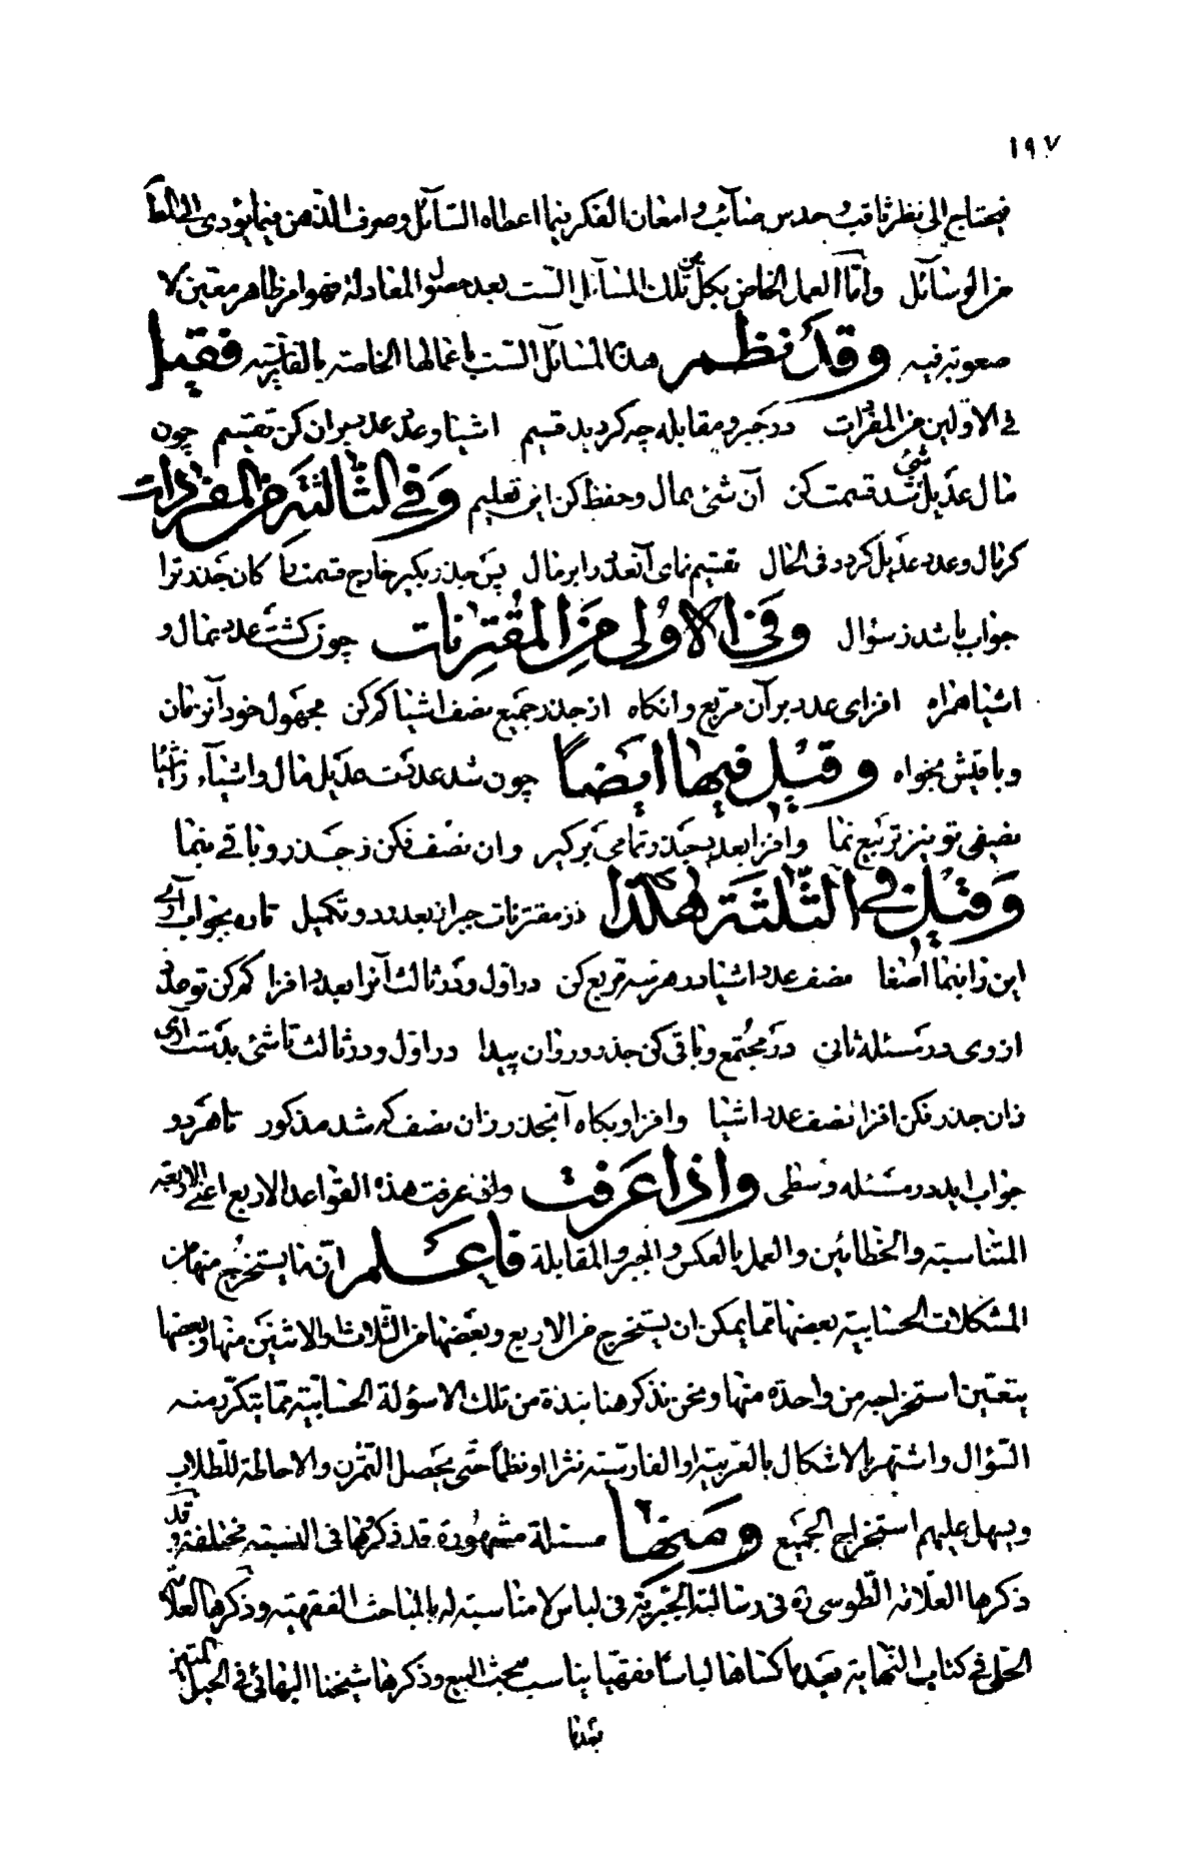 ١٩٧
فيحتاج الى نظر ثاقب وحدس صائب وامعان الفكر فيما اعطاه السائل وصرف الذهن فيما يؤدى الى المطلب
من الوسائل وامّا العمل الخاص بكل من تلك المسائل الست بعد حصول المعادلة فهو امر ظاهر معيّن لا
صعوبة فيه وقد نظم هذه المسائل الست باعمالها الخاصة بالفارسيّة فقيل
فى الاوّلين من المفردات در جبر و مقابله چه كرديد قسيم اشيا وعدد عدد بران كن تقسيم چون
مال عديل شئ شد قسمت كن آن شئ بمال وحفظ كن اين تعليم وفى الثالثة من المفردات
كر مال وعدد عديل كردد فى الحال تقسيم نماى آنعدد را بر مال پس جذر بكير خارج قسمت را كان جذر ترا
جواب باشد ز سؤال وفى الاولى من المقترنات چون كشت عدد بمال و
اشيا همراه افزاى عدد بر آن مربع وانكاه از جذر جميع نصف اشيا كم كن مجهول خود آنزمان
وباقيش بخواه وقيل فيها ايضاً چون شد عددت عديل مال واشياء
نصفى تو نيز تربيع نما وافزا بعدد بجذر تمامى بركير وان نصف فكن ز جذر وباقى بنما
وقيل فى الثلثة هكذا در مقترنات جبر ان بعد رد و تكميل تا ره بجواب آرى
اين را بنما اصغا نصف عدد اشيا در هر سه مربع كن در اول ودر ثالث آنرا بعدد افزا كم كن تو عدد
از وى در مسئله ثانى در مجتمع وباقى كن جذر ورزان پيدا در اول ودر ثالث تا شئ بدست آرى
زان جذر فكن افزا نصف عدد اشيا وافزا وبكاه آنجذر وزان نصف كه شد مذكور تا هر دو
جواب ايد در مسئله وسطى واذا عرفت واذ عرفت هذه القواعد الاربع اعنى الاربعة
المتناسبة والخطائين والعمل بالعكس والجبر والمقابلة فاعلم انّ ما يستخرج منها من
المشكلات الحسابية بعضها ممّا يمكن ان يستخرج من الاربع وبعضها من الثلاث او الاثنين منها وبعضها
يتعيّن استخراجه من واحدة منها ونحن نذكر هنا نبذة من تلك الاسؤلة الحسابيّة ممّا يتكرّر منه
السّؤال واشتهر بالاشكال بالعربية او الفارسيّة نثرا او نظماً حتى يحصل التمرن والاحاطة للطلاب
ويسهل عليهم استخراج الجميع ومنها مسئلة مشهورة قد ذكروها فى النسبة مختلفة وقد
ذكرها العلامة الطوسى ره فى رسالته الجبرية فى لباس لا مناسبة له بالمباحث الفقهية وذكرها العلامة
الحلى فى كتاب النهاية بعد ما كساها لباسا فقهيا يناسب مبحث البيع وذكرها شيخنا البهائى فى الحبل المتين
بعدما